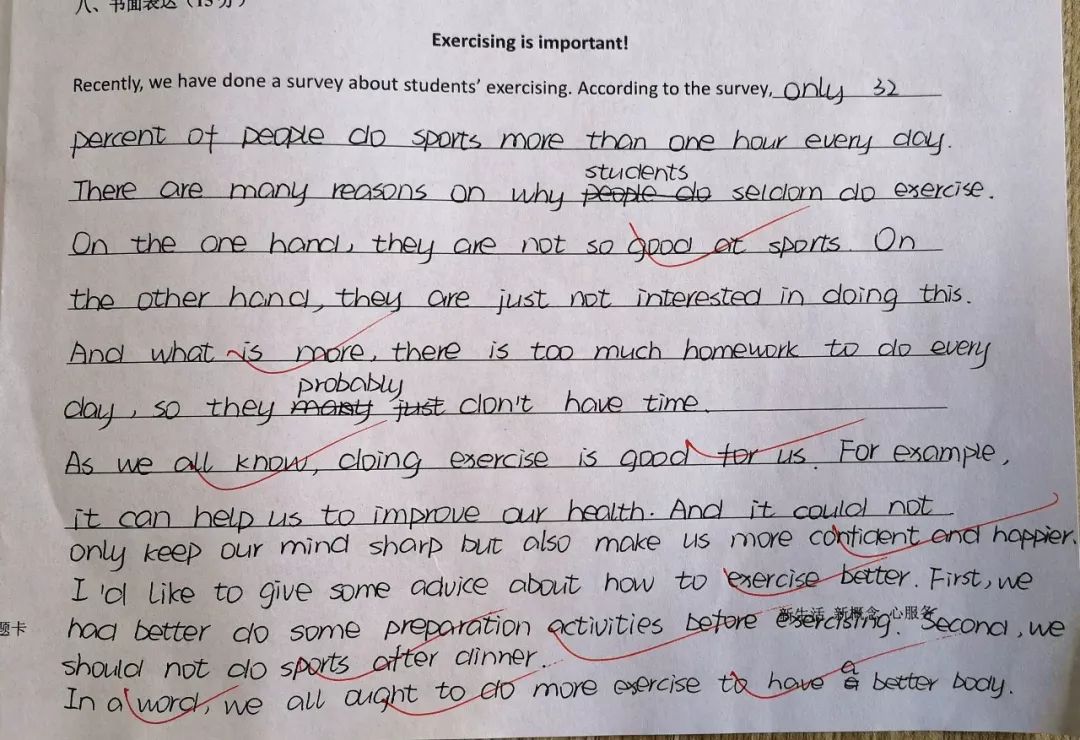 八、书面表达（15分）
Exercising is important!
Recently, we have done a survey about students' exercising. According to the survey, only 32
percent of people do sports more than one hour every day.
students
There are many reasons on why people do seldom do exercise.
On the one hand, they are not so good at sports. On
the other hand, they are just not interested in doing this.
And what is more, there is too much homework to do every
probably
day, so they many just don't have time.
As we all know, doing exercise is good for us. For example,
it can help us to improve our health. And it could not
only keep our mind sharp but also make us more confident and happier.
I'd like to give some advice about how to exercise better. First, we
新生活 新概念 心服务
题卡
had better do some preparation activities before exercising. Second, we
should not do sports after dinner.
a
In a word, we all ought to do more exercise to have a better body.